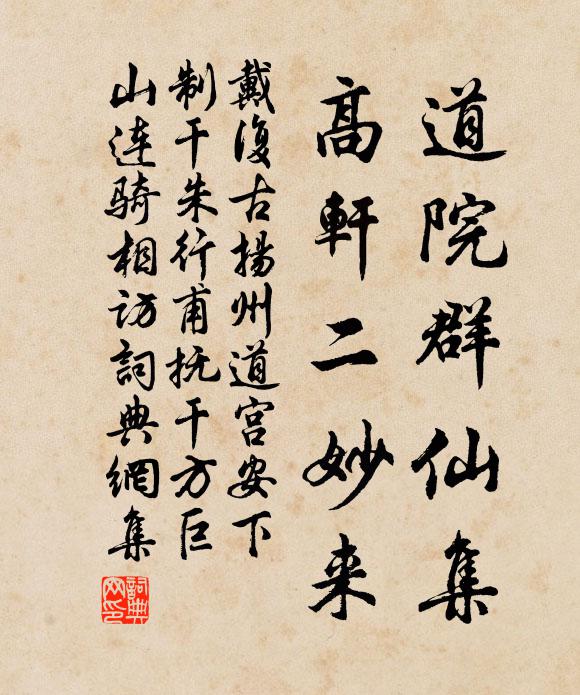 道院群仙集
高軒二妙来
戴復古揚州道宫安下
制干朱行甫抚干方巨
山连骑相访詞典網集
詞典网印